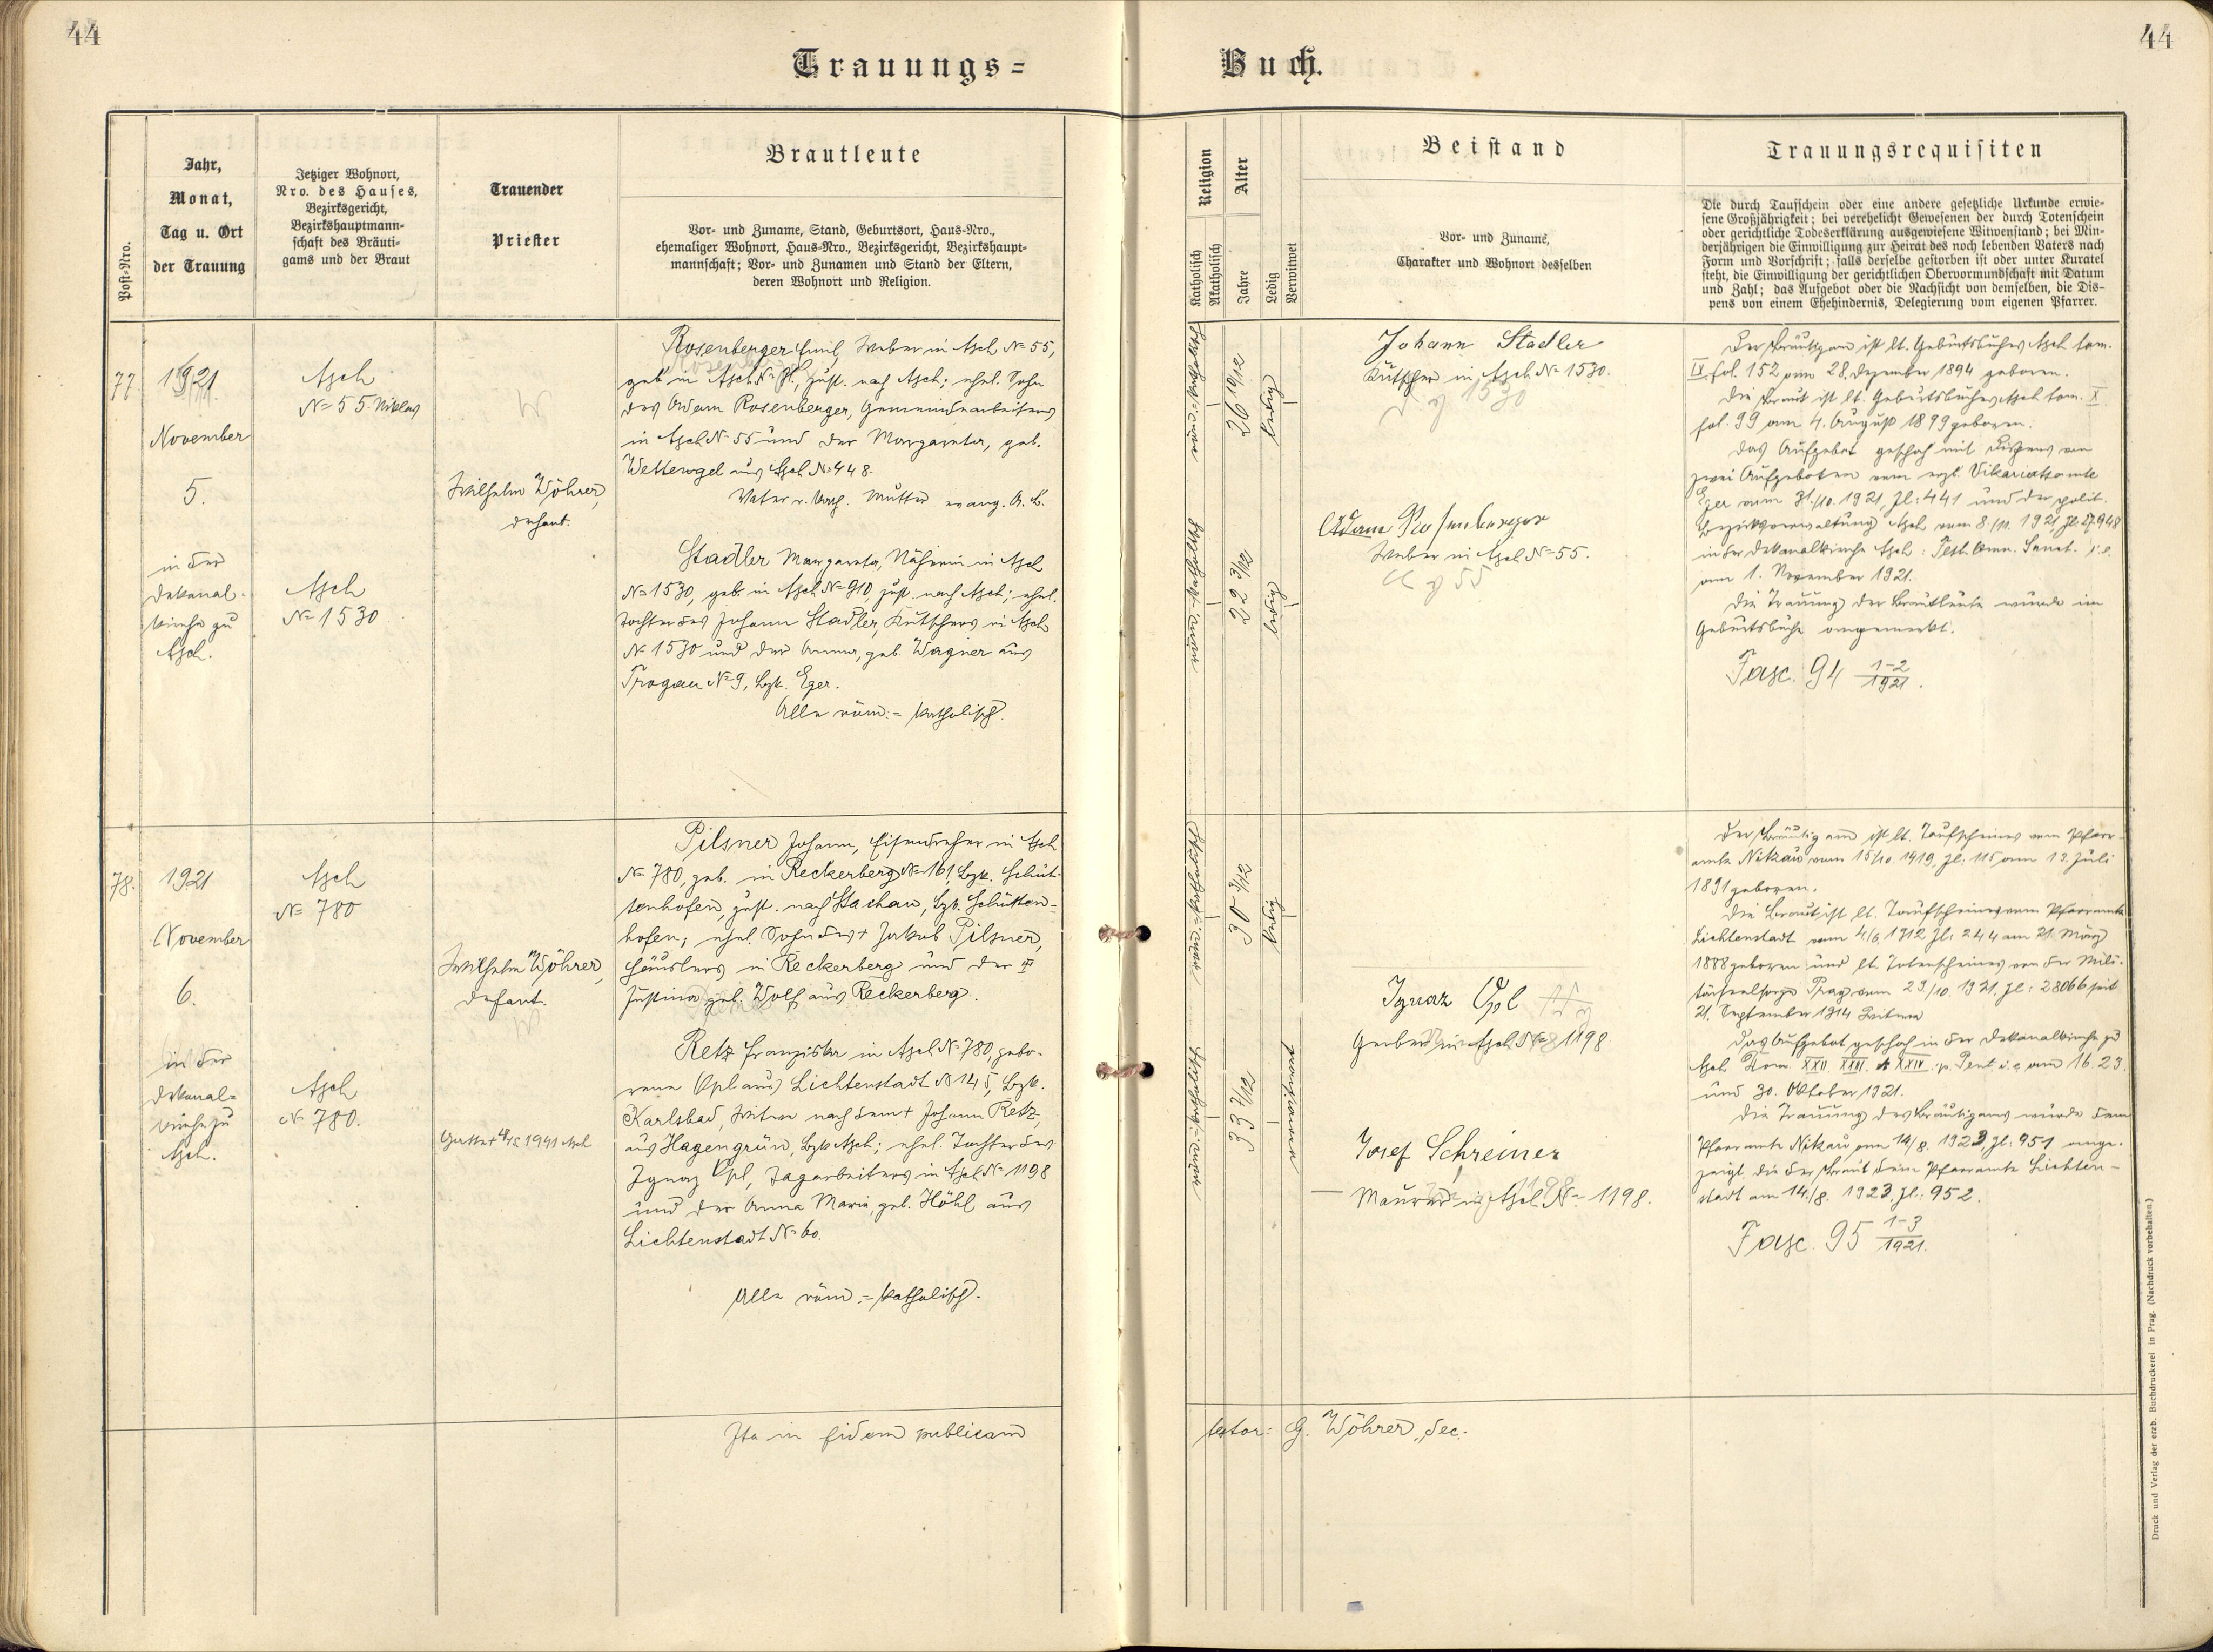 44
44
Trauungs=
Buch.
Post-Nro.
Jahr,
Monat,
Tag u. Ort
der Trauung
Jetziger Wohnort,
Nro. des Hauses,
Bezirksgericht,
Bezirkshauptmann-
schaft des Bräuti-
gams und der Braut
Trauender
Priester
Brautleute
Vor- und Zuname, Stand, Geburtsort, Haus-Nro.,
ehemaliger Wohnort, Haus-Nro., Bezirksgericht, Bezirkshaupt-
mannschaft; Vor- und Zunamen und Stand der Eltern,
deren Wohnort und Religion.
Religion
Katholisch
Akatholisch
Alter
Jahre
Ledig
Verwitwet
Beistand
Vor- und Zuname,
Charakter und Wohnort desselben
Trauungsrequisiten
Die durch Taufschein oder eine andere gesetzliche Urkunde erwie-
sene Großjährigkeit; bei verehelicht Gewesenen der durch Totenschein
oder gerichtliche Todeserklärung ausgewiesene Witwenstand; bei Min-
derjährigen die Einwilligung zur Heirat des noch lebenden Vaters nach
Form und Vorschrift; falls derselbe gestorben ist oder unter Kuratel
steht, die Einwilligung der gerichtlichen Obervormundschaft mit Datum
und Zahl; das Aufgebot oder die Nachsicht von demselben, die Dis-
pens von einem Ehehindernis, Delegierung vom eigenen Pfarrer.
77.
1921
November
5.
in der
Dekanal-
kirche zu
Asch.
Asch
№ 55. Niklas
Asch
№ 1530
Wilhelm Wöhrer,
Dechant.
Rosenberger Emil, Weber in Asch № 55,
geb. in Asch №, zust. nach Asch; ehel. Sohn
des Adam Rosenberger, Gemeindearbeiters
in Asch № 55 und der Margareta, geb.
Wettengel aus Asch № 448.
Vater r. kath. Mutter evang. A. B.
Stadler Margareta, Näherin in Asch
№ 1530, geb. in Asch № 910, zust. nach Asch; ehel.
Tochter des Johann Stadler, Kutschers in Asch
№ 1530 und der Anna, geb. Wagner aus
Trogau № 9, Bzk. Eger.
Alle röm.=katholisch.
katholisch
26 10/12
ledig
katholisch
22 3/12
ledig
Johann Stadler
Kutscher in Asch № 1530.
Adam Rosenberger
Weber in Asch № 55.
Der Bräutigam ist lt. Geburtsbuches Asch tom.
IX. fol. 152 am 28. Dezember 1894 geboren.
Die Braut ist lt. Geburtsbuches Asch tom. X.
fol. 99 am 4. August 1899 geboren.
Das Aufgebot geschah mit Dispens von
zwei Aufgeboten vom erzb. Vikariatsamte
Eger vom 31./10. 1921, Zl: 441 und der polit.
Bezirksverwaltung Asch vom 8./11. 1921 Zl. 27.948
in der Dekanalkirche Asch: Fest. Omn. Sanct. i. e.
am 1. November 1921.
Die Trauung der Brautleute wurde im
Geburtsbuche angemerkt.
Fasc. 94 1-2/1921.
78.
1921
November
6.
in der
Dekanal=
kirche zu
Asch.
Asch
№ 780
Asch
№ 780.
Wilhelm Wöhrer,
Dechant.
Pilsner Johann, Eisendreher in Asch
№ 780, geb. in Reckerberg № 161, Bzk. Schüt-
tenhofen, zust. nach Stachau, Bzk. Schütten-
hofen; ehel. Sohn des + Jakob Pilsner,
Häuslers in Reckerberg und der +
Justina geb. Wolf aus Reckerberg.
Retz Franziska in Asch № 780, gebo-
rene Opl aus Lichtenstadt № 145, Bzk.
Karlsbad, Witwe nach dem + Johann Retz,
aus Hagengrün, Bzk. Asch; ehel. Tochter des
Ignaz Opl, Tagarbeiters in Asch № 1198
und der Anna Maria, geb. Höhl aus
Lichtenstadt № 60.
Alle röm.=katholisch.
katholisch
30
ledig
katholisch
33 7/12
verwitwet
Ignaz Opl
Gerber in Asch № 1198
Josef Schreiner
Maurer in Asch № 1198.
Der Bräutigam ist lt. Taufscheines vom Pfarr-
amte Nitzau vom 15/10. 1919, Zl: 115 am 13. Juli
1891 geboren.
Die Braut ist lt. Taufscheines vom Pfarramte
Lichtenstadt vom 4/6. 1912 Zl: 244 am 21. März
1888 geboren und lt. Totenscheines von der Mili-
tärseelsorge Prag vom 29/10. 1921. Zl: 28066 seit
21. September 1914 Witwe
Das Aufgebot geschah in der Dekanalkirche zu
Asch Dom. XXII. XXIII. et XXIV. p. Pent. i. e. am 16. 23.
und 30. Oktober 1921.
Die Trauung des Bräutigams wurde dem
Pfarramte Nitzau am 14/8. 1923, Zl: 951 ange-
zeigt, die der Braut dem Pfarramte Lichten-
stadt am 14./8. 1923. Zl: 952.
Fasc. 95 1-3/1921.
Ita in fidem publicam
testor: G. Wöhrer, dec.
Druck und Verlag der erzb. Buchdruckerei in Prag. (Nachdruck vorbehalten.)